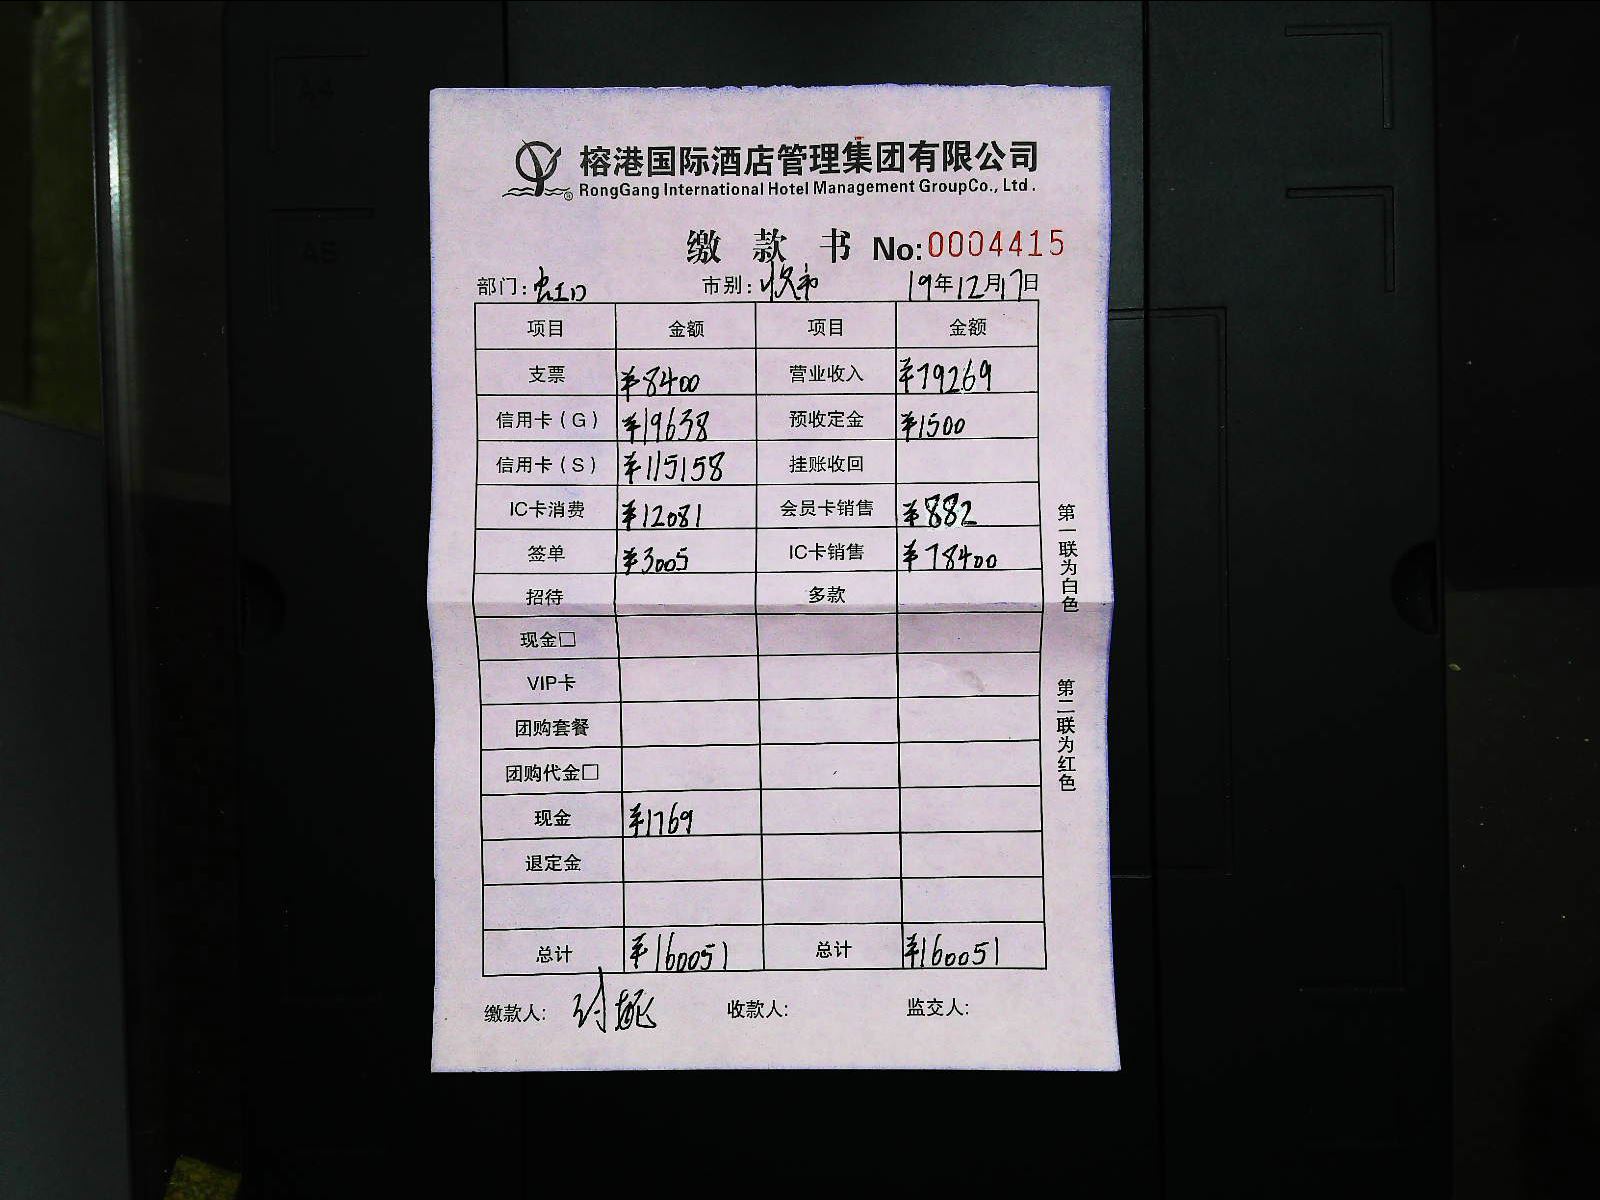 榕港国际酒店管理集团有限公司
RongGang International Hotel Management GroupCo., Ltd.
缴款书 No:0004415
部门:虹口 市别:收市 19年12月17日
项目 金额 项目 金额
支票 ¥8400 营业收入 ¥79269
信用卡(G) ¥19638 预收定金 ¥1500
信用卡(S) ¥115158 挂账收回
IC卡消费 ¥12081 会员卡销售 ¥882
签单 ¥3005 IC卡销售 ¥78400
招待 多款
现金□
VIP卡
团购套餐
团购代金□
现金 ¥1769
退定金
总计 ¥160051 总计 ¥160051
缴款人: 收款人: 监交人:
第一联为白色
第二联为红色
A4
A5